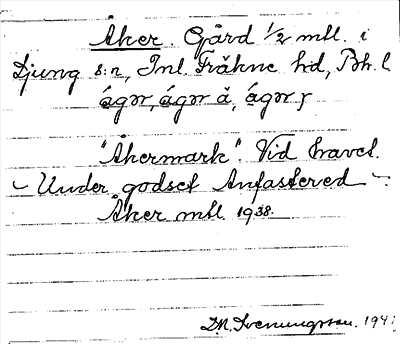 Åker. Gård 1/2 mtl. i
Ljung s:n, Inl. Fräkne hd, Bh. l.
ágər, ágər å, ágər
"Åkermark". Vid havet.
- Under godset Anfastered -.
Åker mtl. 1938.
D.A. Svenungsson. 194